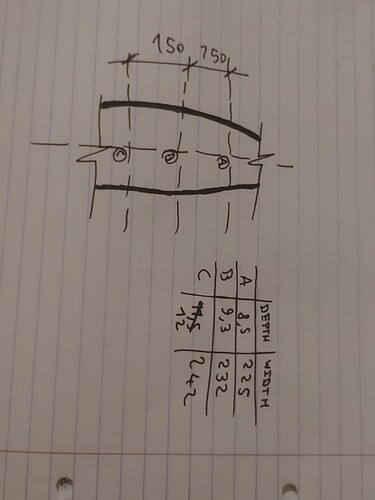 150 750
C B A
DEPTH WIDTH
A 8,5 225
B 9,3 232
C 11,5 242
12